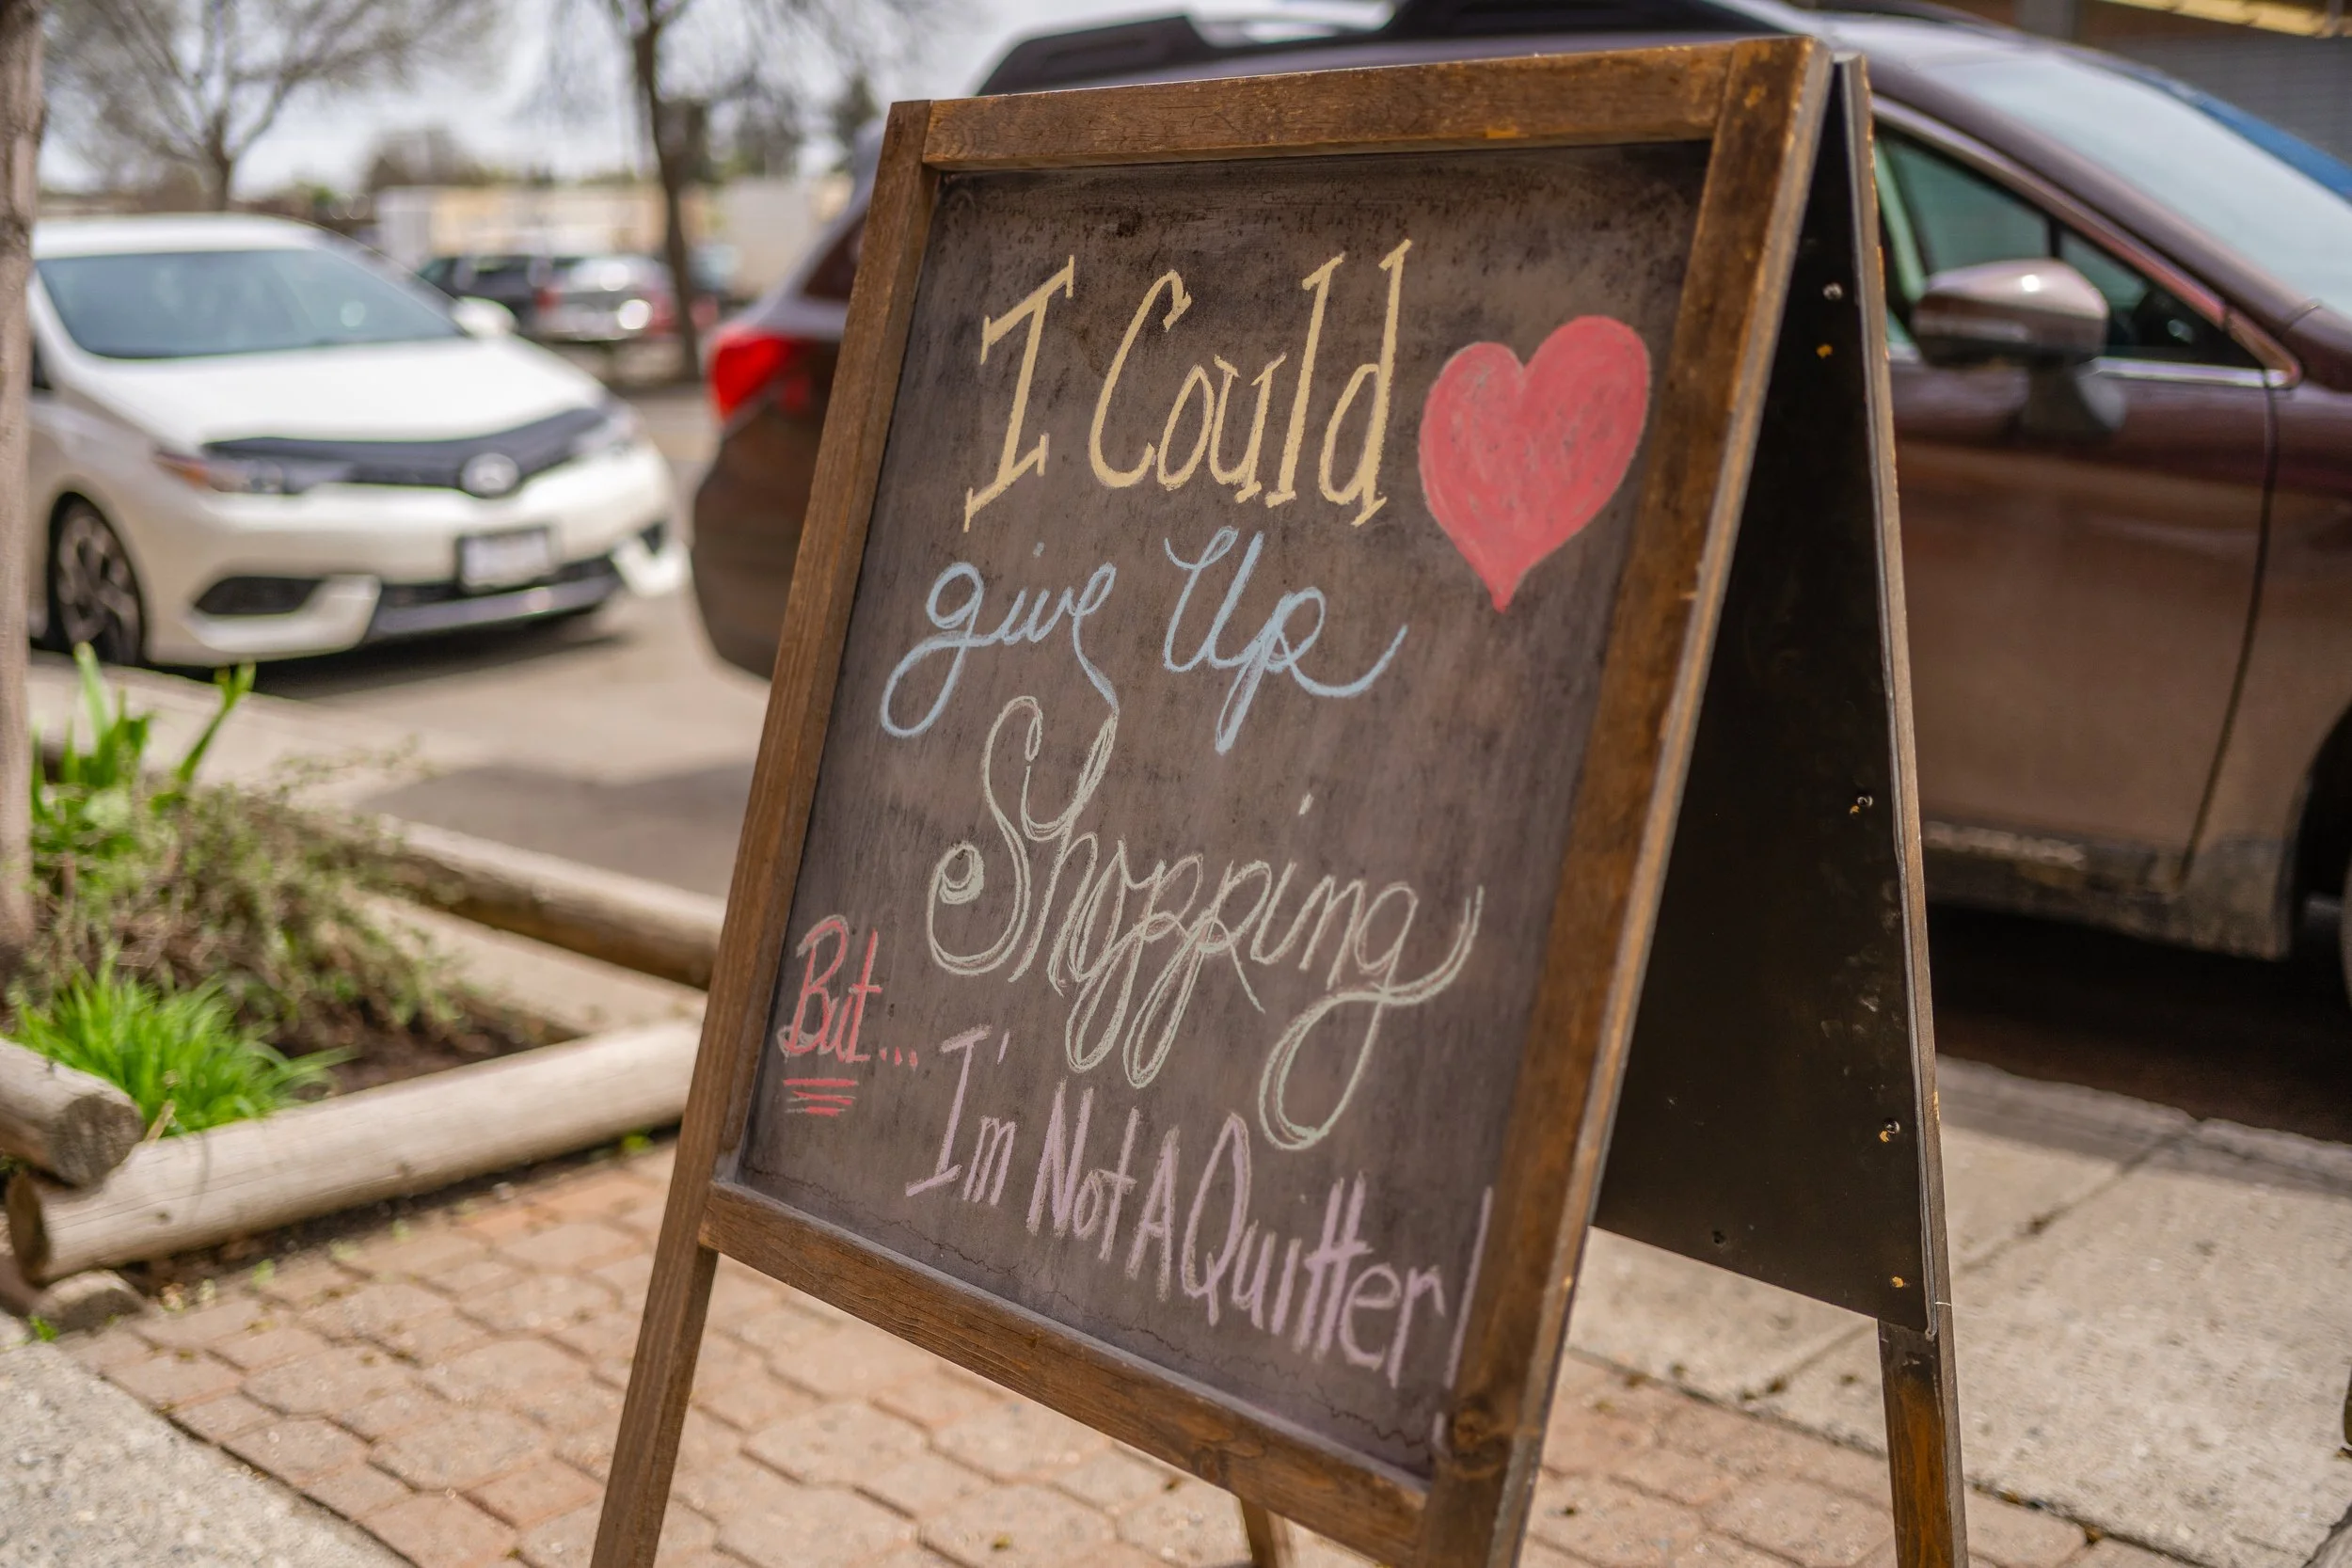 I Could
give Up
Shopping
But...
I'm Not A Quitter